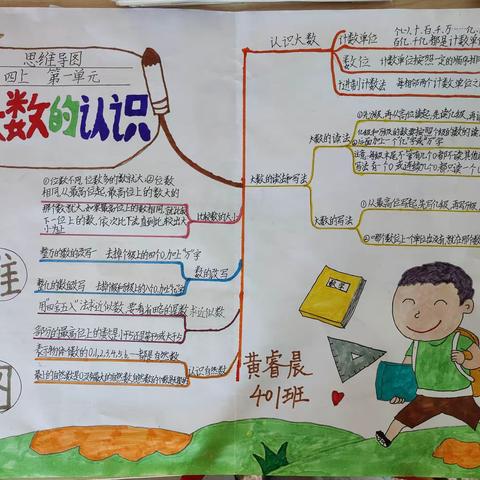 思维导图
四上 第一单元
数的认识
认识大数
计数单位
个、十、百、千、万……亿、
百亿、千亿都是计数单位
数位
计数单位按照一定的顺序排
十进制计数法
每相邻两个计数单位之
大数的读法和写法
大数的读法
①先分级,再从高位读起,先读亿级,再读
亿级和万级的数要按照个级的数的读
后面加上一个"亿"字或"万"字
注意:每级末尾不管有几个0都不读,其他
有一个0或连续几个0,都只读一个0
大数的写法
①从最高位写起,先写亿级,再写万级
②哪个数位上一个单位也没有,就在那个数
比较数的大小
①位数不同,位数多的数就大;②位数
相同,从最高位起,最高位上的数大的
那个数就大,如果最高位上的数相同,就比较
下一位上的数,依次比下去,直到比较出大
小为止
数的改写
整万的数的改写
去掉个级上的四个0,加上"万"字
整亿的数的改写
求近似数
用"四舍五入"法求近似数,要看省略的尾数
部分的最高位上的数是小于5还是等于或大于5
认识自然数
表示物体个数的0,1,2,3,4,5,6,…都是自然数
最小的自然数是0,没有最大的自然数,自然数的个数是无限的
数学
维
图
黄睿晨
401班